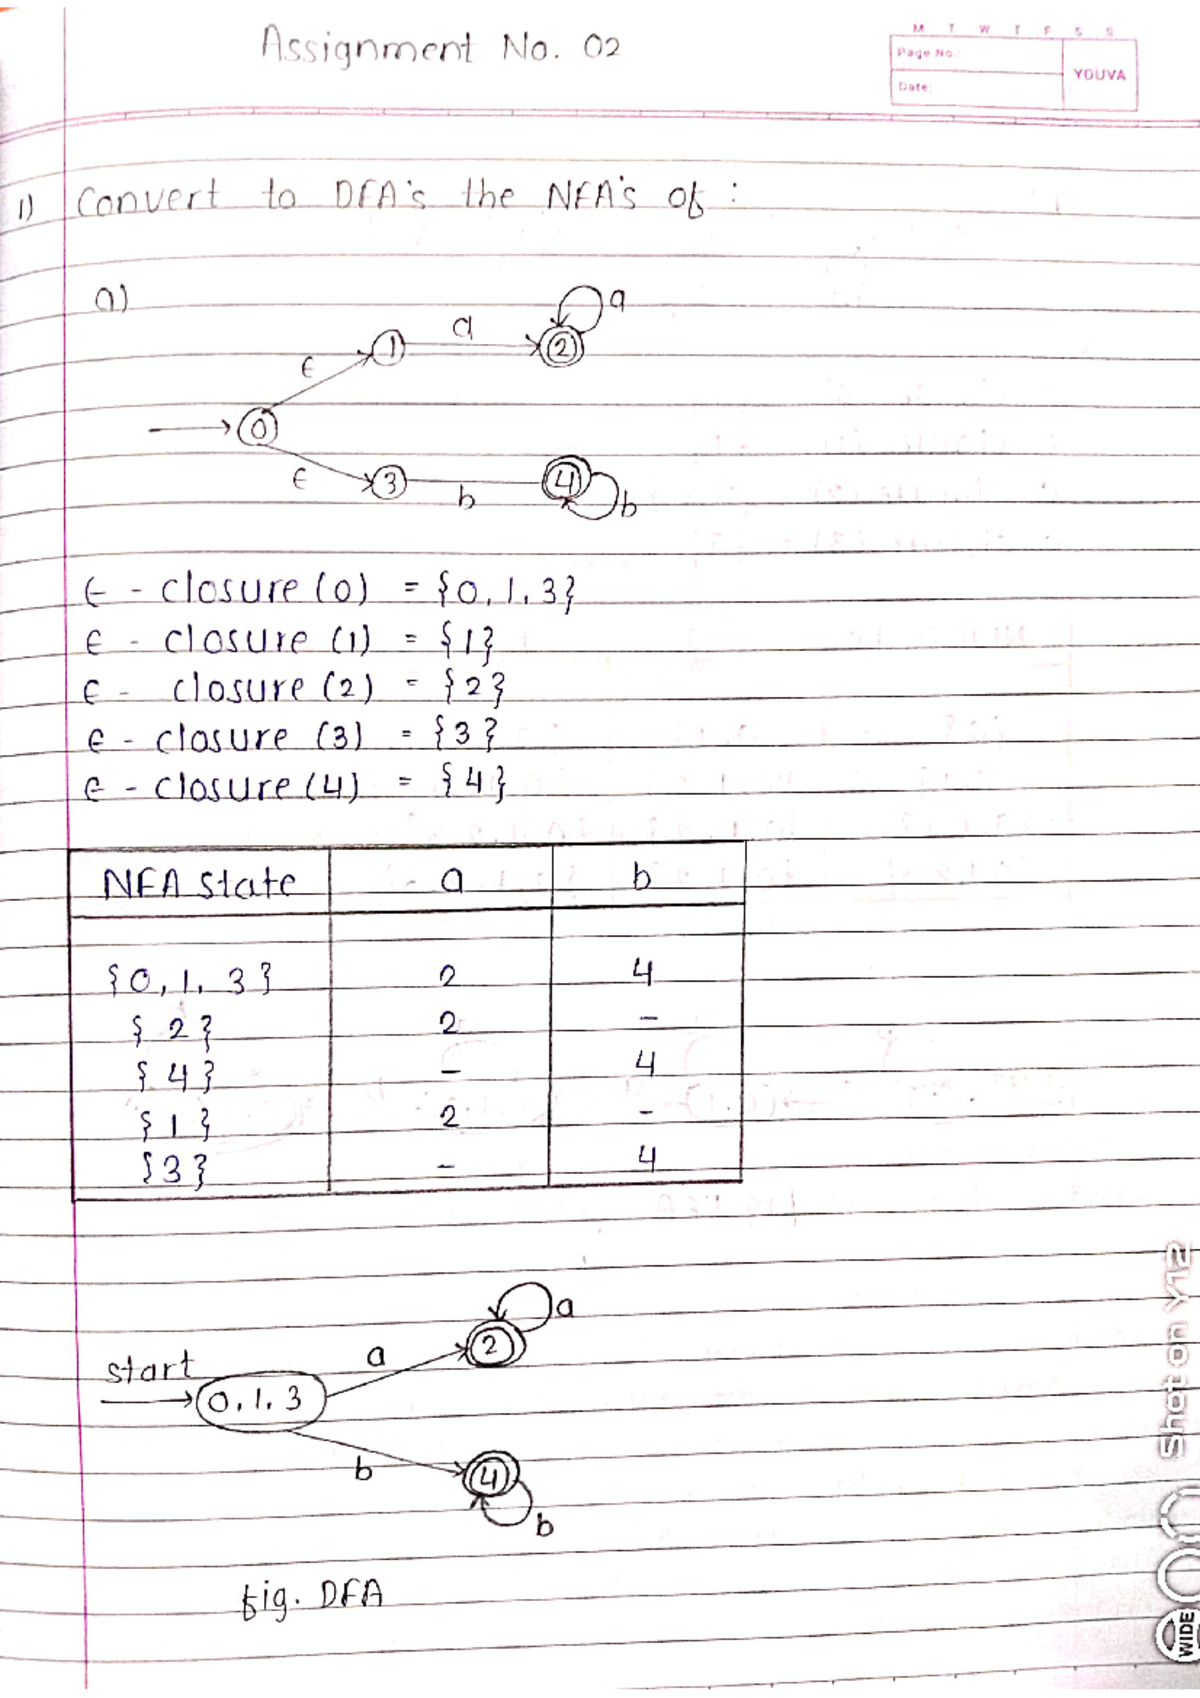 Assignment No. 02
M T W T F S S
Page No.:
Date:
YOUVA
1) Convert to DFA's the NFA's of :
a)
a
a
1
2
ϵ
0
ϵ
3
b
4
b
ϵ - closure (0) = {0, 1, 3}
ϵ - closure (1) = {1}
ϵ - closure (2) = {2}
ϵ - closure (3) = {3}
ϵ - closure (4) = {4}
NFA state a b
{0, 1, 3} 2 4
{2} 2 -
{4} - 4
{1} 2 -
{3} - 4
a
2
a
start
0, 1, 3
b
4
b
fig. DFA
Shot on Y12
WIDE